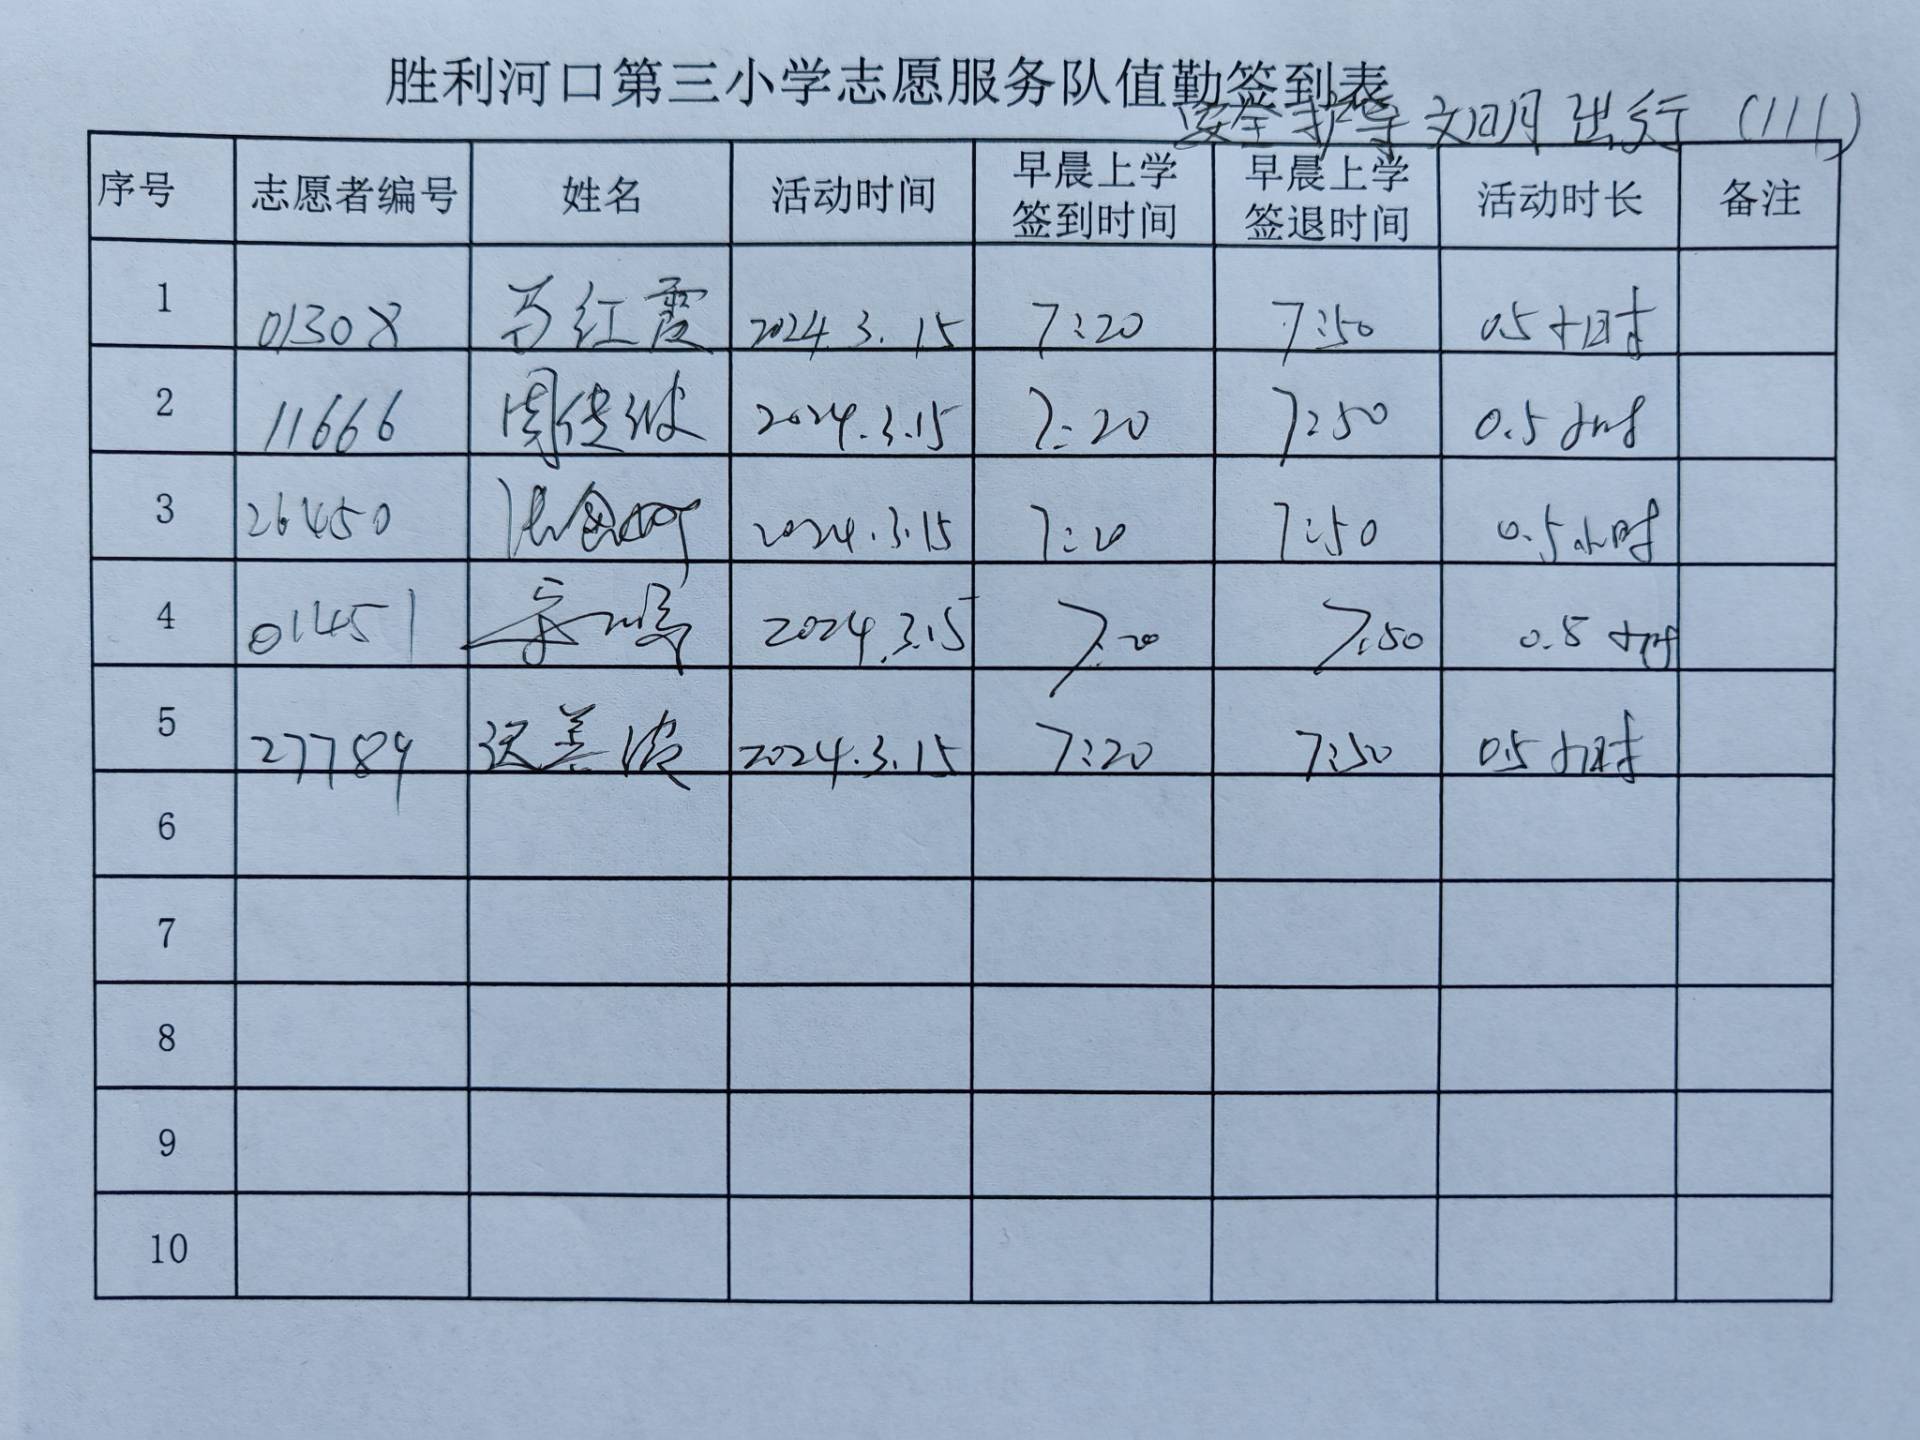 胜利河口第三小学志愿服务队值勤签到表
安全护学 文明出行 (111)
序号 志愿者编号 姓名 活动时间 早晨上学签到时间 早晨上学签退时间 活动时长 备注
1 01308 马红霞 2024.3.15 7:20 7:50 0.5小时
2 11666 周 2024.3.15 7:20 7:50 0.5小时
3 26450 2024.3.15 7:20 7:50 0.5小时
4 01451 2024.3.15 7:20 7:50 0.5小时
5 27789 2024.3.15 7:20 7:50 0.5小时
6
7
8
9
10